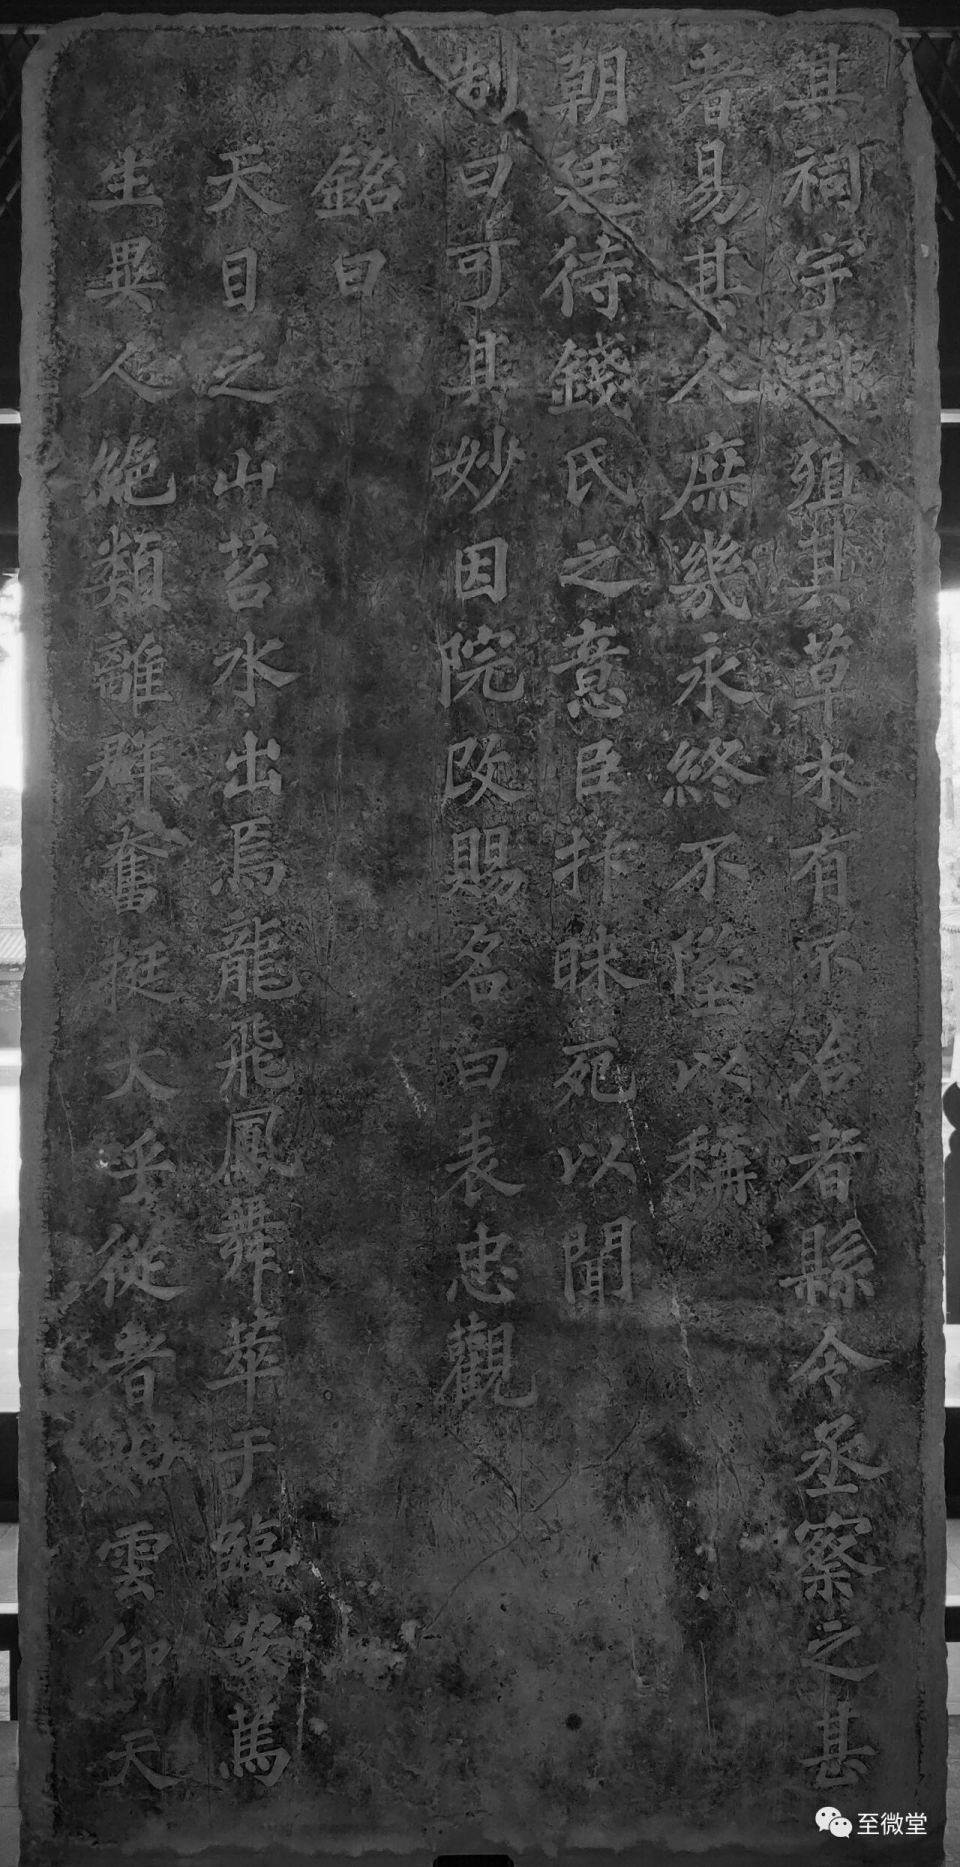 其祠宇籬殖其草木有不治者縣令丞察之甚
者易其人庶幾永終不墜以稱
朝廷待錢氏之意臣抃昧死以聞
制曰可其妙因院改賜名曰表忠觀
銘曰
天目之山苕水出焉龍飛鳳舞萃于臨安篤
生異人絕類離群奮挺大乎從者如雲仰天
至微堂